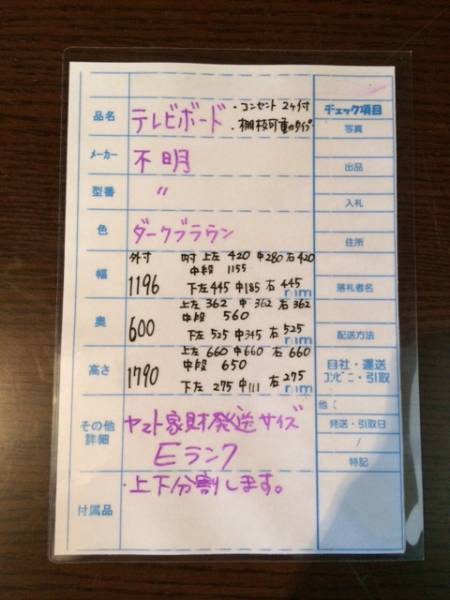 品名 テレビボード ・コンセント2ヶ付
・棚板可動タイプ
メーカー 不明
型番 〃
色 ダークブラウン
幅 外寸 1196 内寸 上左 420 中280 右420
中段 1155
下左445 中185 右445
mm
奥 600 上左362 中362 右362
中段 560
下左525 中345 右525
mm
高さ 1790 上左660 中660 右660
中段 650
下左 275 中111 右275
mm
その他
詳細
ヤマト家財発送サイズ
Eランク
付属品 ・上下分割します。
チェック項目
写真
出品
入札
住所
落札者名
配送方法
自社・運送
コンビニ・引取
他:
発送・引取日
/
特記